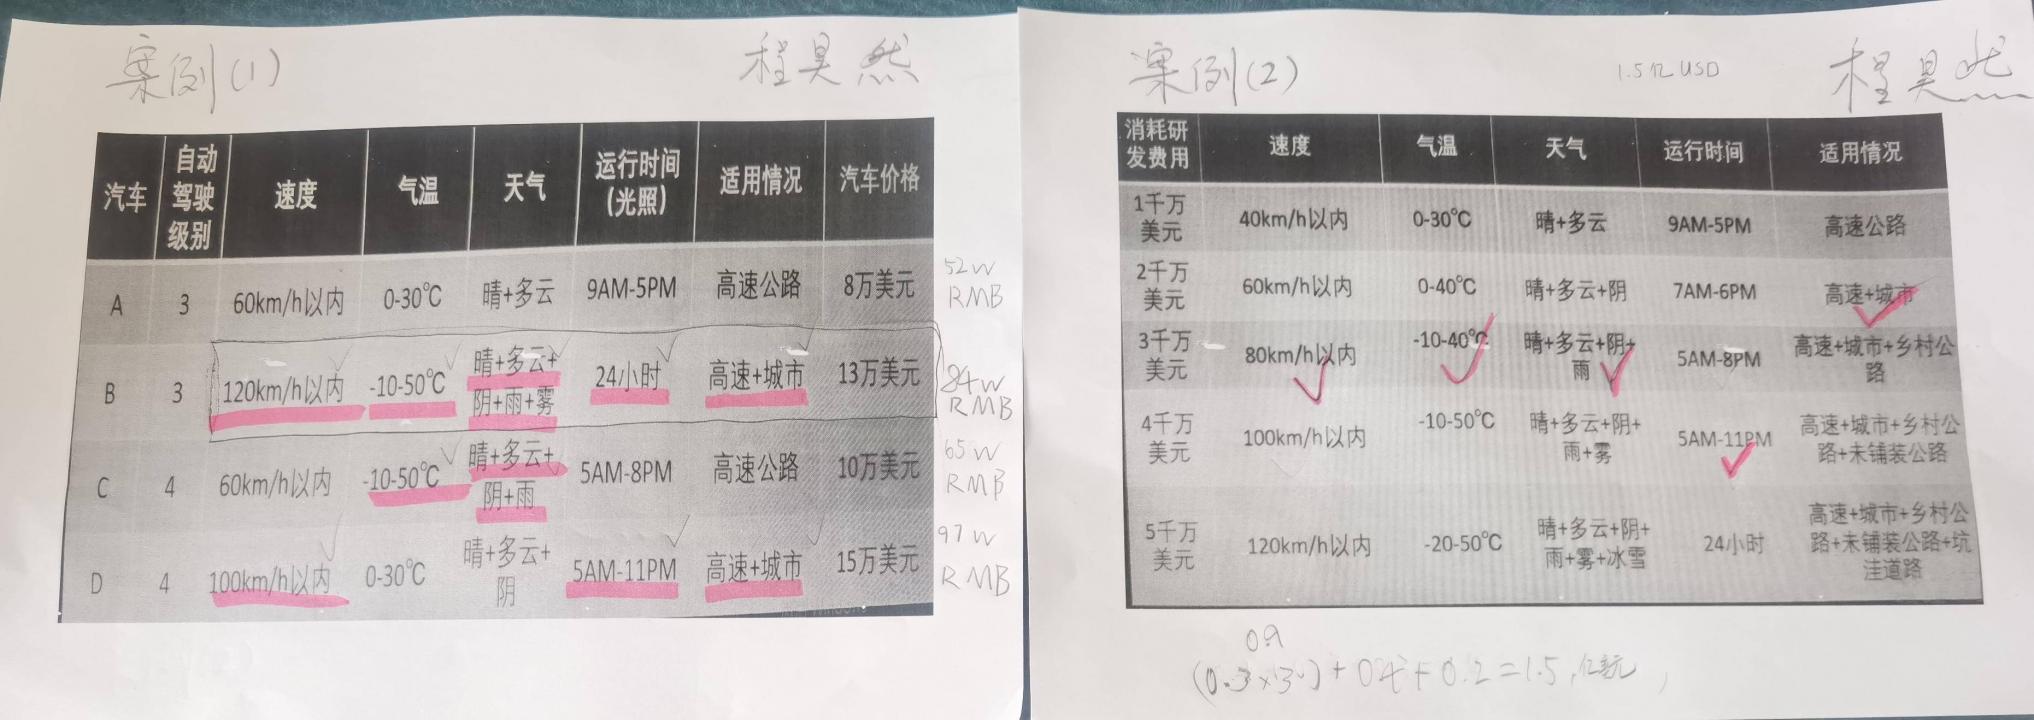 案例(1)
程昊然
汽车 自动驾驶级别 速度 气温 天气 运行时间(光照) 适用情况 汽车价格
A 3 60km/h以内 0-30℃ 晴+多云 9AM-5PM 高速公路 8万美元 52W RMB
B 3 120km/h以内 -10-50℃ 晴+多云+阴+雨+雾 24小时 高速+城市 13万美元 84W RMB
C 4 60km/h以内 -10-50℃ 晴+多云+阴+雨 5AM-8PM 高速公路 10万美元 65W RMB
D 4 100km/h以内 0-30℃ 晴+多云+阴 5AM-11PM 高速+城市 15万美元 97W RMB
案例(2)
1.5亿USD
程昊然
消耗研发费用 速度 气温 天气 运行时间 适用情况
1千万美元 40km/h以内 0-30℃ 晴+多云 9AM-5PM 高速公路
2千万美元 60km/h以内 0-40℃ 晴+多云+阴 7AM-6PM 高速+城市
3千万美元 80km/h以内 -10-40℃ 晴+多云+阴+雨 5AM-8PM 高速+城市+乡村公路
4千万美元 100km/h以内 -10-50℃ 晴+多云+阴+雨+雾 5AM-11PM 高速+城市+乡村公路+未铺装公路
5千万美元 120km/h以内 -20-50℃ 晴+多云+阴+雨+雾+冰雪 24小时 高速+城市+乡村公路+未铺装公路+坑洼道路
0.9
(0.3×3)+0.4+0.2=1.5